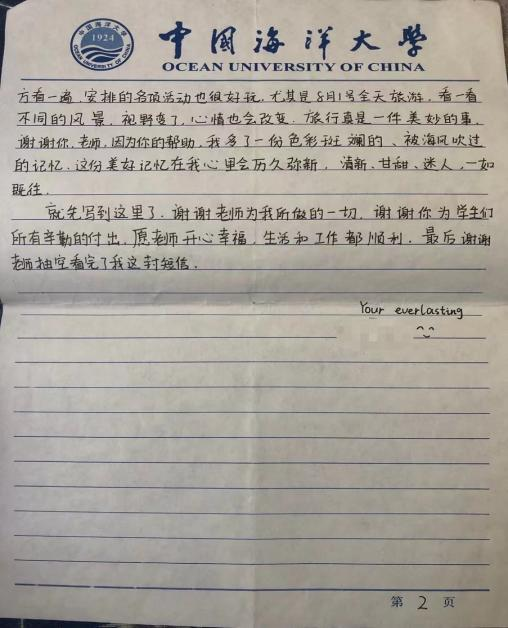 中国海洋大学
1924
OCEAN UNIVERSITY OF CHINA
中国海洋大学
OCEAN UNIVERSITY OF CHINA
方看一遍.安排的各项活动也很好玩.尤其是8月1号全天旅游.看一看
不同的风景.视野变了,心情也会改变.旅行真是一件美妙的事.
谢谢你,老师,因为你的帮助,我多了一份色彩斑斓的、被海风吹过
的记忆.这份美好记忆在我心里会历久弥新,清新、甘甜、迷人,一如
既往.
就先写到这里了.谢谢老师为我所做的一切,谢谢你为学生们
所有辛勤的付出,愿老师开心幸福,生活和工作都顺利.最后谢谢
老师抽空看完了我这封短信.
Your everlasting
第 2 页